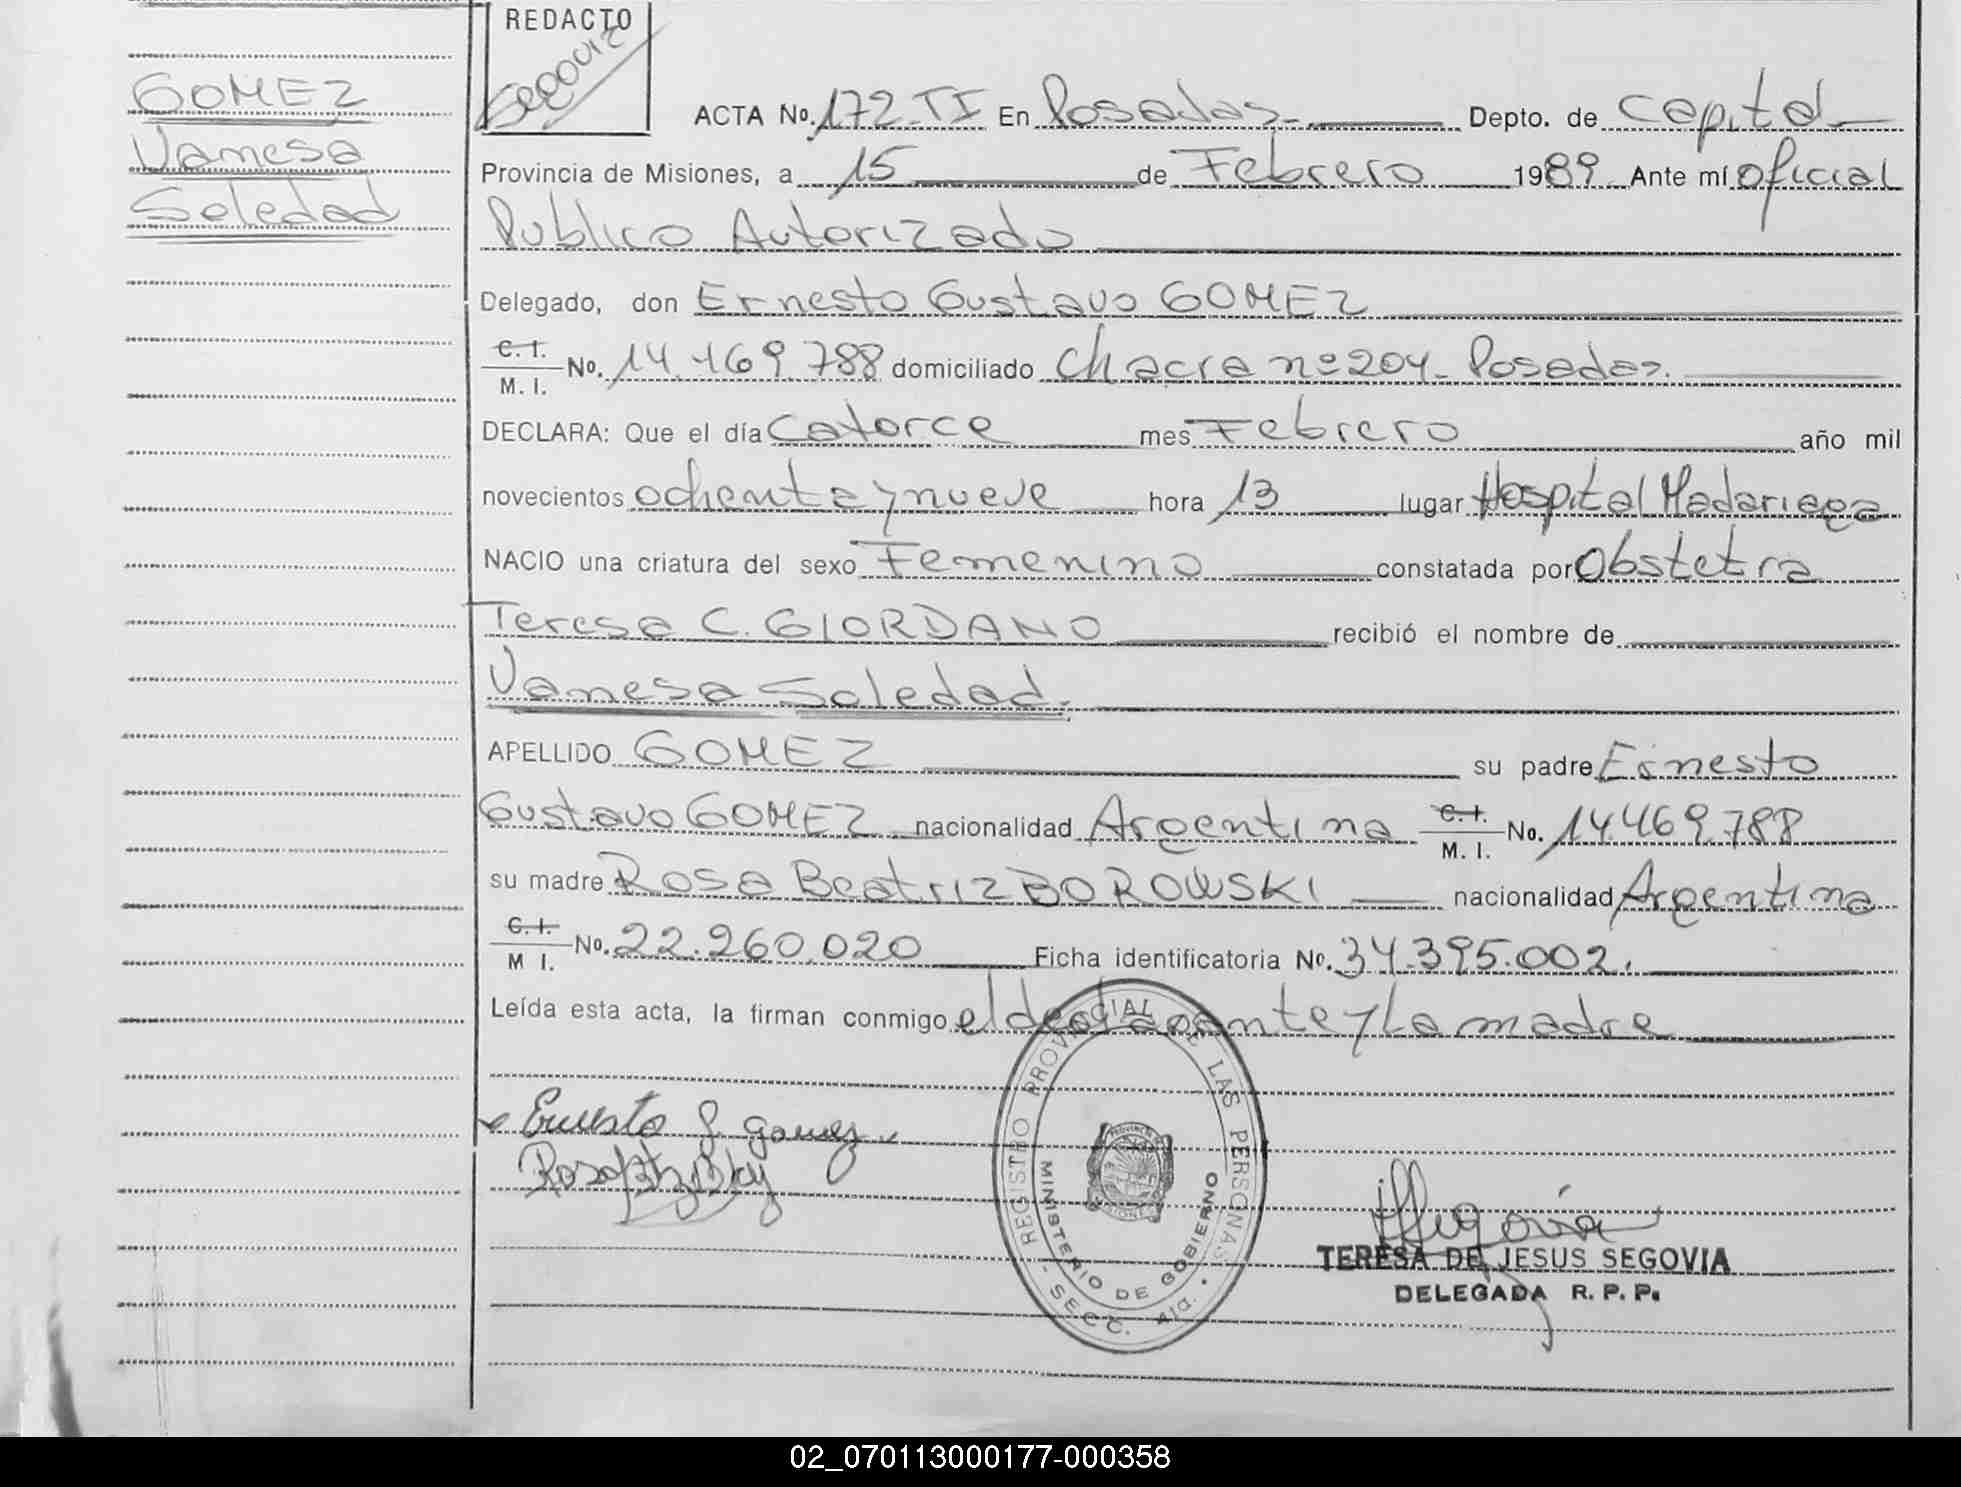 REDACTO
Segovia
GOMEZ
Vanesa
Soledad
ACTA No. 172-TI En Posadas Depto. de Capital
Provincia de Misiones, a 15 de Febrero 1989 Ante mí oficial
Publico Autorizado
Delegado, don Ernesto Gustavo GOMEZ
C. I.
M. I. No. 14.469.788 domiciliado Chacra nº 204 - Posadas.
DECLARA: Que el día Catorce mes Febrero año mil
novecientos ochenta y nueve hora 13 lugar Hospital Madariaga
NACIO una criatura del sexo Femenino constatada por Obstetra
Teresa C. GIORDANO recibió el nombre de
Vanesa Soledad.
APELLIDO GOMEZ su padre Ernesto
Gustavo GOMEZ nacionalidad Argentina C. I.
M. I. No. 14.469.788
su madre Rosa Beatriz BOROWSKI nacionalidad Argentina
C. I.
M I. No. 22.260.020 Ficha identificatoria No. 34.395.002.
Leída esta acta, la firman conmigo el declarante y La madre
Ernesto G. Gomez
REGISTRO PROVINCIAL DE LAS PERSONAS
MINISTERIO DE GOBIERNO
- SECC. 41a. -
TERESA DE JESUS SEGOVIA
DELEGADA R. P. P.
02_070113000177-000358